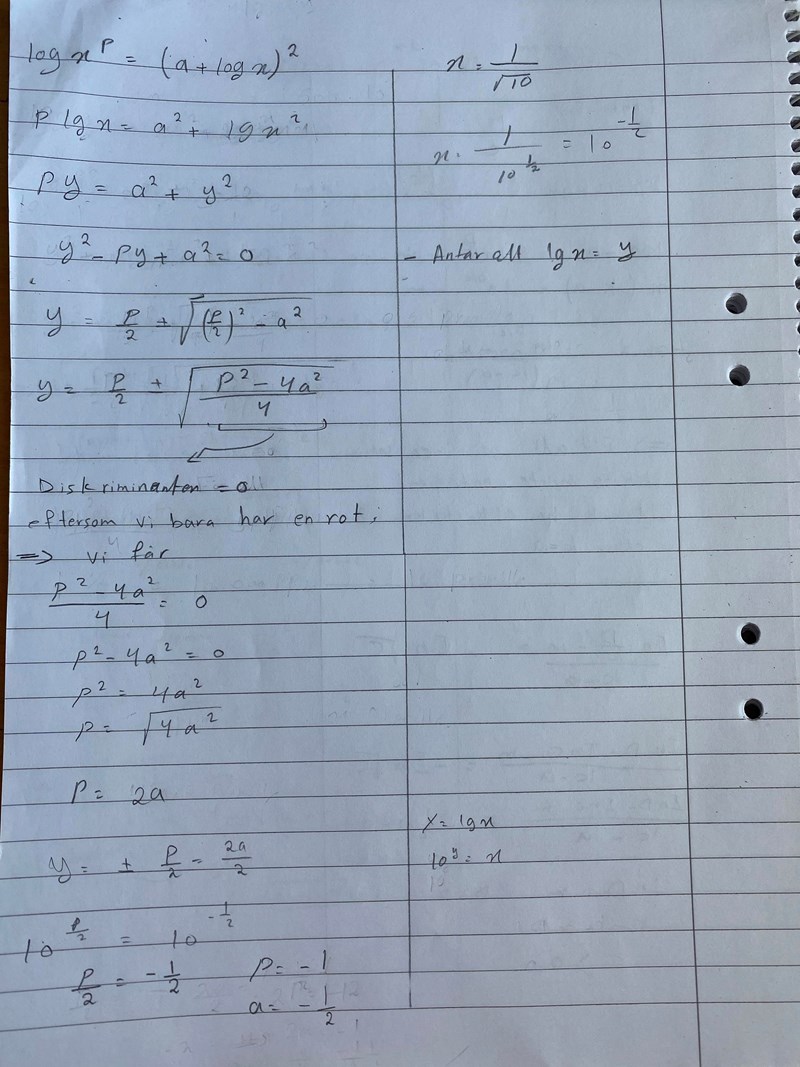 log x^p = (a + log x)^2
p lg x = a^2 + lg x^2
py = a^2 + y^2
y^2 - py + a^2 = 0
y = p/2 ± √((p/2)^2 - a^2)
y = p/2 ± √((p^2 - 4a^2)/4)
Diskriminanten = 0
eftersom vi bara har en rot.
=> vi får
(p^2 - 4a^2)/4 = 0
p^2 - 4a^2 = 0
p^2 = 4a^2
p = √(4a^2)
p = 2a
y = ± p/2 = 2a/2
10^(p/2) = 10^(-1/2)
p/2 = -1/2 p = -1
a = -1/2
x = 1/√10
x = 1/10^(1/2) = 10^(-1/2)
- Antar att lg x = y
y = lg x
10^y = x
10